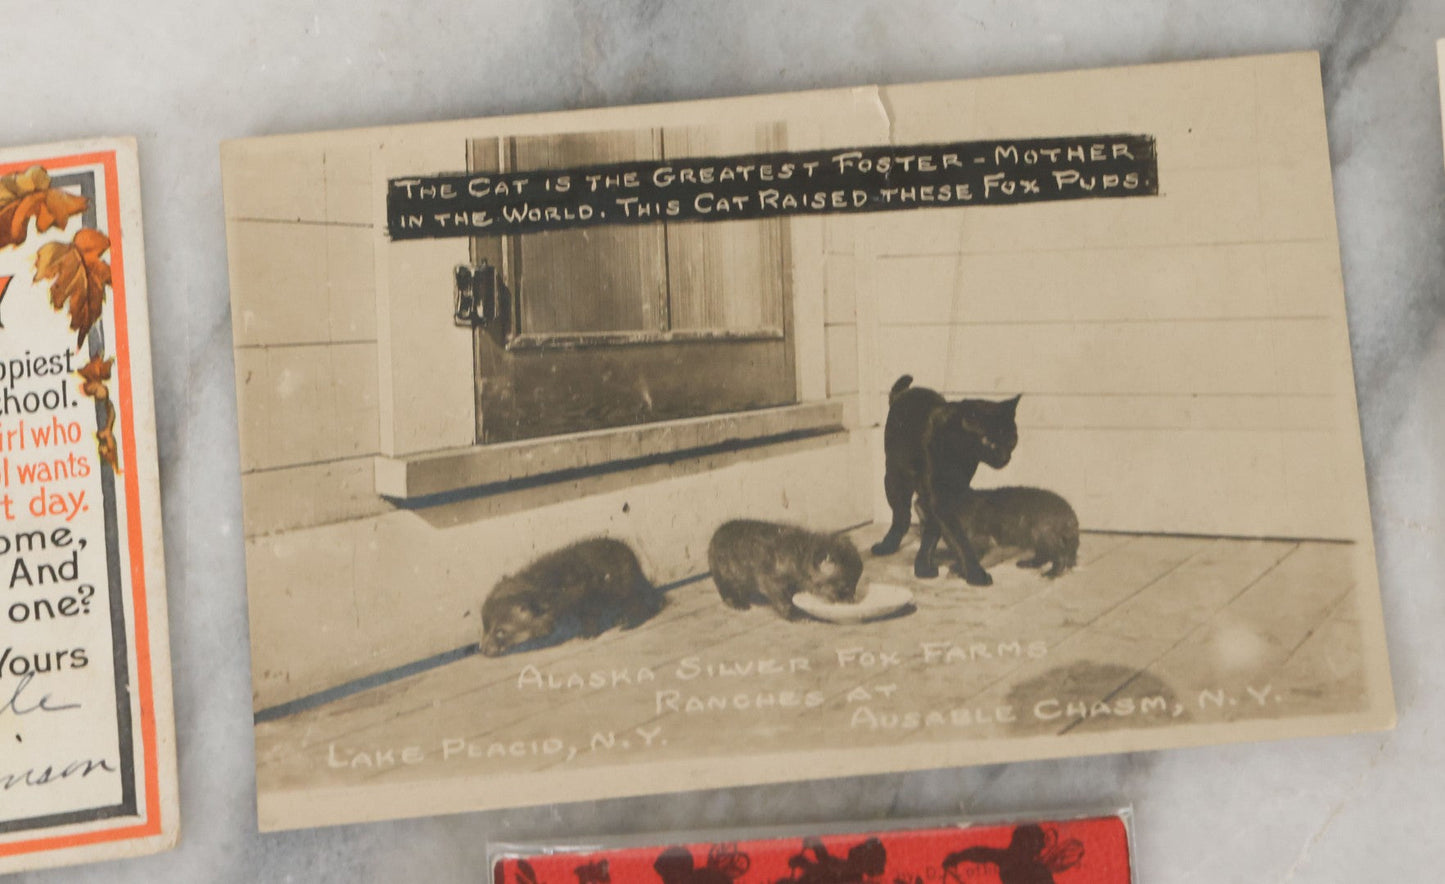 THE CAT IS THE GREATEST FOSTER-MOTHER
IN THE WORLD. THIS CAT RAISED THESE FOX PUPS.
ALASKA SILVER FOX FARMS
RANCHES AT
LAKE PLACID, N.Y.
AUSABLE CHASM, N.Y.
school.
girl who
wants
day.
And
one?
Yours